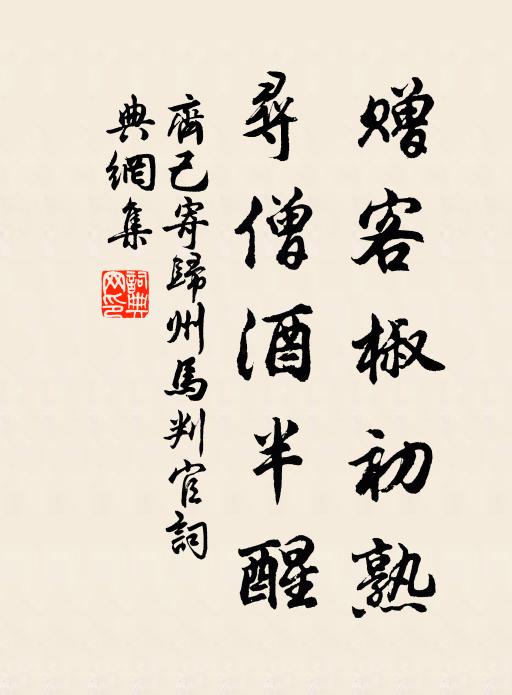 赠客椒初熟
尋僧酒半醒
齊己寄歸州馬判官詞
典網集
詞典網印